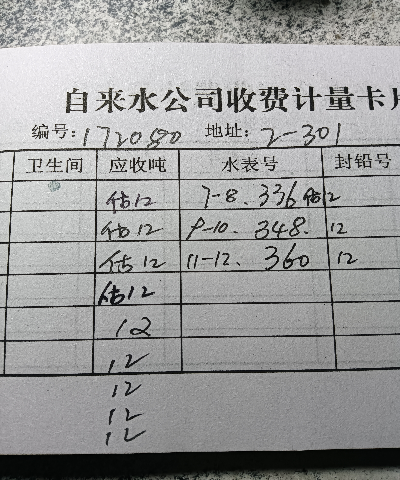 自来水公司收费计量卡片
编号:1720580 地址:2-301
卫生间 应收吨 水表号 封铅号
估12 7-8、336 估12
估12 9-10、348、12
估12 11-12、360 12
估12
12
12
12
12
12